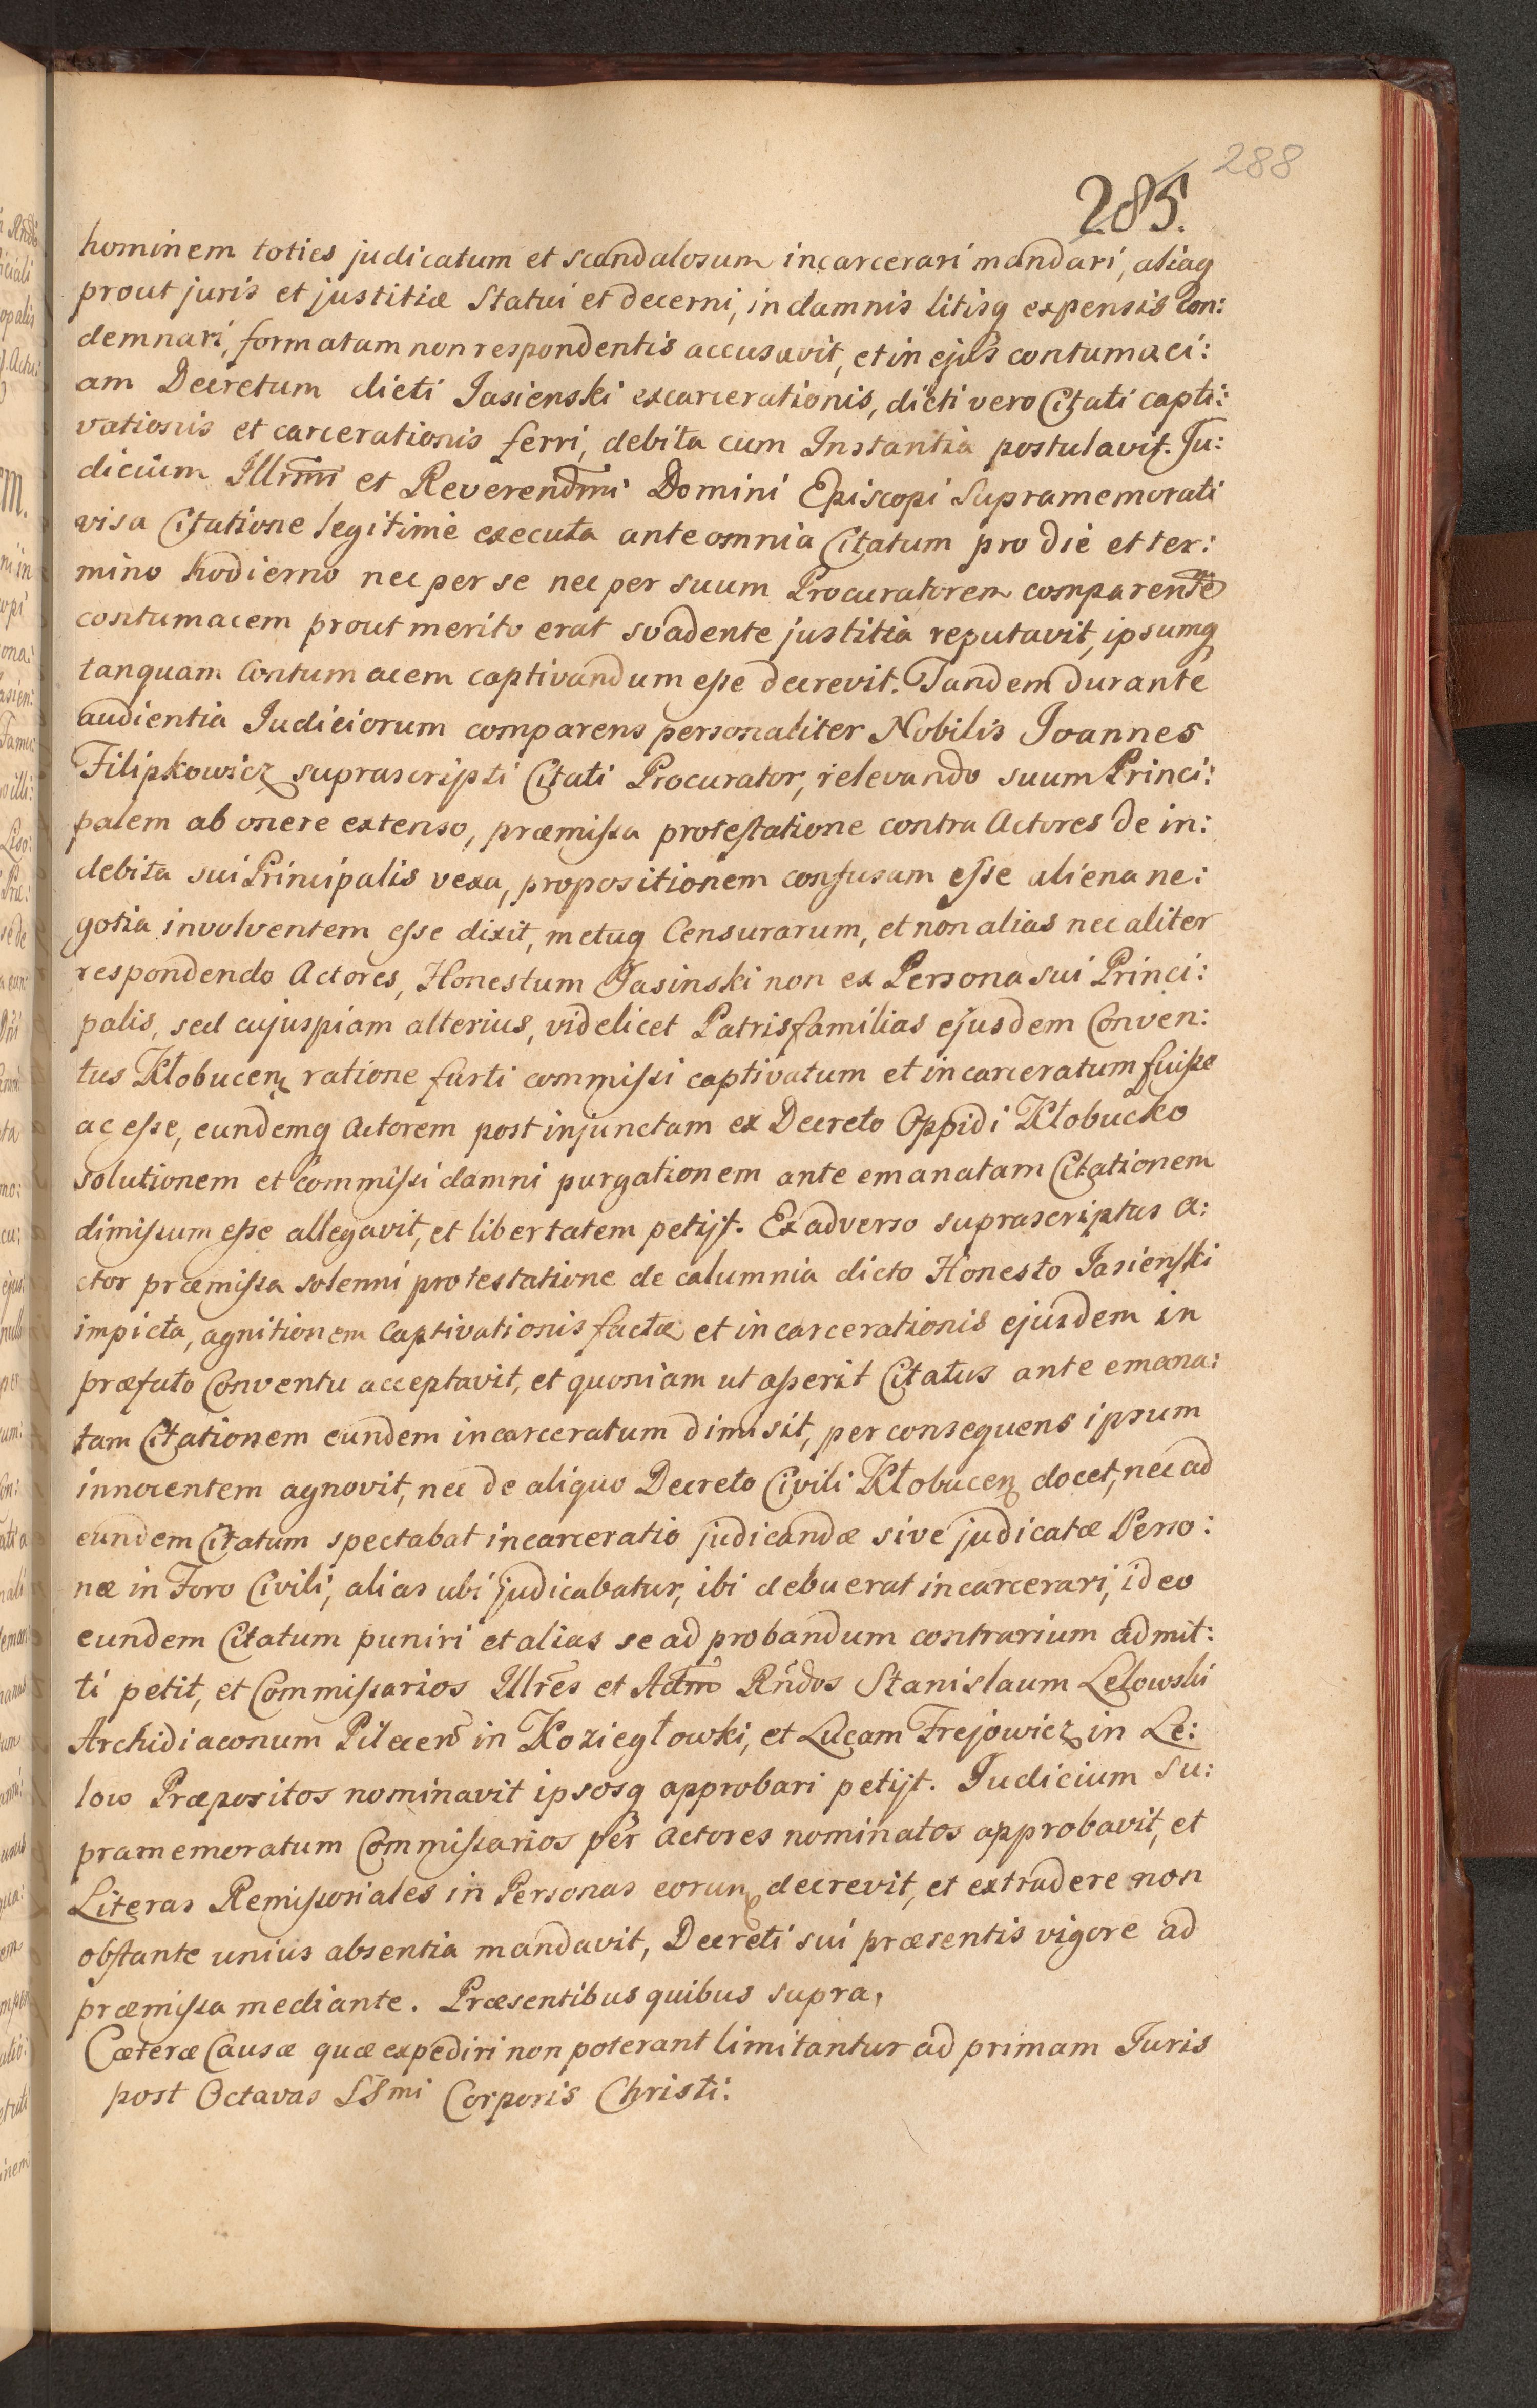 288
285.
hominem toties judicatum et scandalosum incarcerari mandari, aliaq
prout juris et justitiæ Statui et decerni, in damnis litisq expensis Con:
demnari, formatam non respondentis accusavit, et in ejus contumaci:
am Decretum dicti Jasienski excarcerationis, dicti vero Citati capti:
vationis et carcerationis ferri, debita cum Instantia postulavit. Ju:
dicium Illrmi et Reverendmi Domini Episcopi Supramemorati
visa Citatione legitimè executa ante omnia Citatum pro die et ter:
mino hodierno nec per se nec per suum Procuratorem comparente
contumacem prout merito erat svadente justitia reputavit, ipsumq
tanquam Contumacem captivandum esse decrevit. Tandem durante
audientia Judiciorum comparens personaliter Nobilis Joannes
Filipkowicz suprascripti Citati Procurator, relevando suum Princi:
palem ab onere extenso, præmissa protestatione contra Actores de in:
debita sui Principalis vexa, propositionem confusam esse aliena ne:
gotia involventem esse dixit, metuq Censurarum, et non alias nec aliter
respondendo Actores, Honestum Jasinski non ex Persona sui Princi:
palis, sed cujuspiam alterius, videlicet Patrisfamilias ejusdem Conven:
tus Kłobucen ratione furti commissi captivatum et incarceratum fuisse
ac esse, eundemq Actorem post injunctam ex Decreto Oppidi Kłobucko
solutionem et commissi damni purgationem ante emanatam Citationem
dimissum esse allegavit, et libertatem petijt. Ex adverso suprascriptus A:
ctor præmissa solenni protestatione de calumnia dicto Honesto Jasienski
impicta, agnitionem Captivationis factæ et incarcerationis ejusdem in
præfato Conventu acceptavit, et quoniam ut asserit Citatus ante emana:
tam Citationem eundem incarceratum dimisit, per consequens ipsum
innocentem agnovit, nec de aliquo Decreto Civili Kłobucen docet, nec ad
eundem Citatum spectabat incarceratio judicandæ sive judicatæ Perso:
næ in Foro Civili, alias ubi judicabatur, ibi debuerat incarcerari, ideo
eundem Citatum puniri et alias se ad probandum contrarium admit:
ti petit, et Commissarios Illres et Adm Rndos Stanislaum Lelowski
Archidiaconum Pilecen in Koziegłowki, et Lucam Frejowicz in Le:
low Præpositos nominavit ipsosq approbari petijt. Judicium Su:
pramemoratum Commissarios per Actores nominatos approbavit, et
Literas Remissoriales in Personas eorum decrevit, et extradere non
obstante unius absentia mandavit, Decreti sui præsentis vigore ad
præmissa mediante. Præsentibus quibus supra,
Cæteræ Causæ quæ expediri non poterant limitantur ad primam Juris
post Octavas SSmi Corporis Christi: